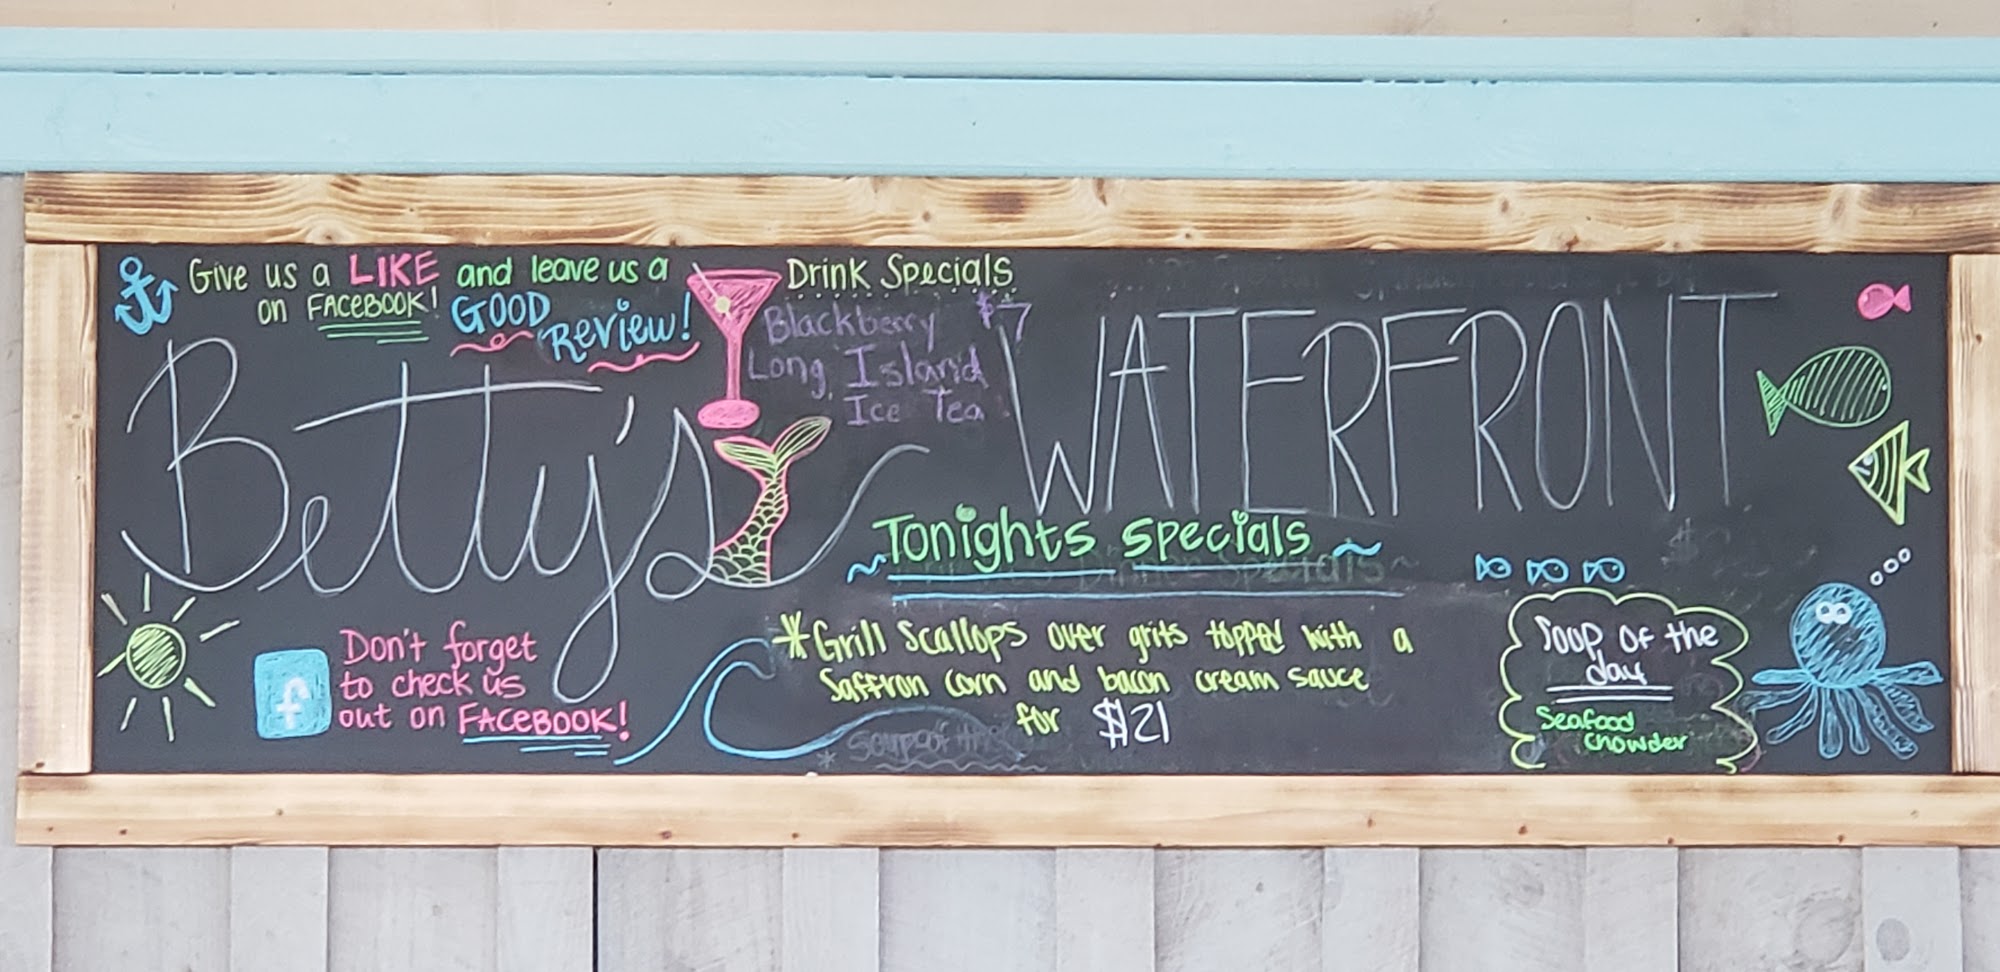 Give us a LIKE and leave us a
on FACEBOOK! GOOD
Review!
Drink Specials
Blackberry $7
Long Island
Ice Tea
Betty's
WATERFRONT
Tonights Specials
Dinner Specials
*Grill Scallops over grits topped with a
Saffron Corn and bacon cream sauce
for $21
* Soup of the
Soup of the
day
Seafood
Chowder
f
Don't forget
to check us
out on FACEBOOK!